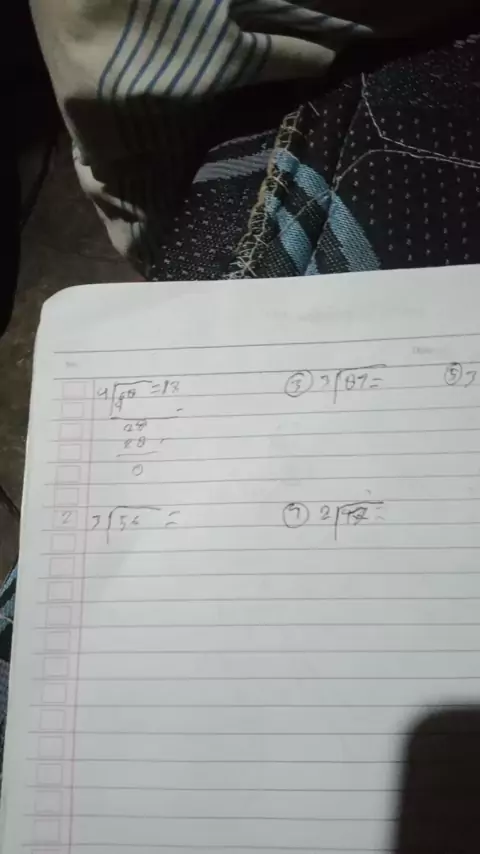 4√68 =18
4
28
28
0
③ 3√87=
⑤ 3
2 3√56 =
④ 2√